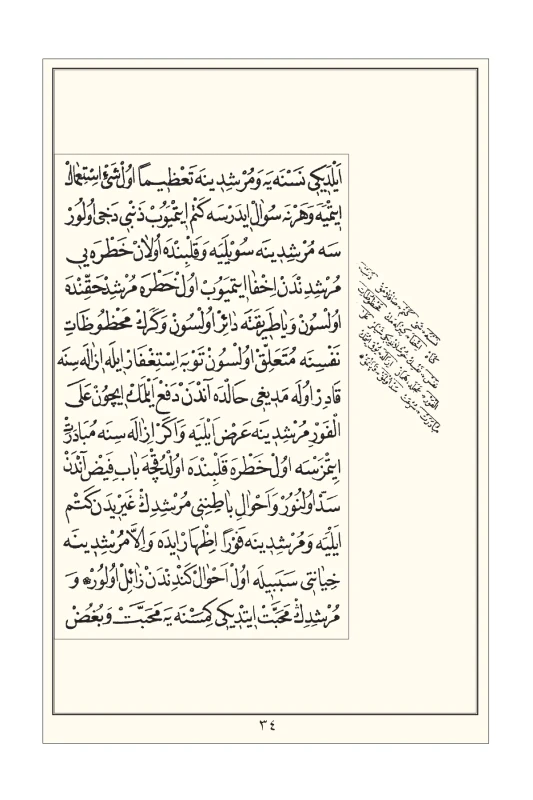 ايلديكى نسنه يه و مرشدينه تعظيما اول شئ استعمال
ايتميه و هر نه سؤال ايدرسه كتم ايتميوب ذنبى دخى اولور
سه مرشدينه سويليه و قلبنده اولان خطره يى
مرشدندن اخفا ايتميوب اول خطره مرشد حقنده
اولسون و يا طريقنه دائر اولسون و كرك محظوظات
نفسينه متعلق اولسون توبه استغفار ايله ازاله سنه
قادر اوله مديغى حالده آندن دفع ايلمك ايچون على
الفور مرشدينه عرض ايليه و اكر ازاله سنه مبادرت
ايتمزسه اول خطره قلبنده اولدقچه باب فيض آندن
سد اولنور و احوال باطننى مرشدك غيريدن كتم
ايليه و مرشدينه فورا اظهار ايده والا مرشدينه
خيانتى سببيله اول احوال كندندن زائل اولور و
مرشدك محبت ايتديكى كمسنه يه محبت و بغض
٣٤